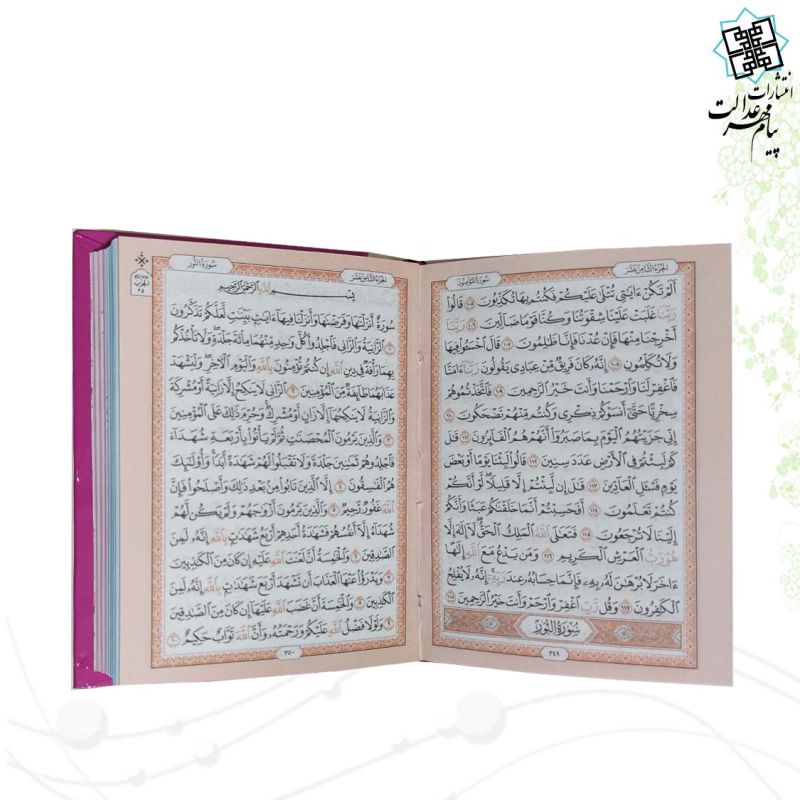 انتشارات
پیام مهر عدالت
سورة المؤمنون
الجزء الثامن عشر
أَلَمْ تَكُنْ ءَايَٰتِى تُتْلَىٰ عَلَيْكُمْ فَكُنتُم بِهَا تُكَذِّبُونَ ١٠٥ قَالُوا۟
رَبَّنَا غَلَبَتْ عَلَيْنَا شِقْوَتُنَا وَكُنَّا قَوْمًا ضَآلِّينَ ١٠٦ رَبَّنَآ
أَخْرِجْنَا مِنْهَا فَإِنْ عُدْنَا فَإِنَّا ظَٰلِمُونَ ١٠٧ قَالَ ٱخْسَـُٔوا۟ فِيهَا
وَلَا تُكَلِّمُونِ ١٠٨ إِنَّهُۥ كَانَ فَرِيقٌ مِّنْ عِبَادِى يَقُولُونَ رَبَّنَآ ءَامَنَّا
فَٱغْفِرْ لَنَا وَٱرْحَمْنَا وَأَنتَ خَيْرُ ٱلرَّٰحِمِينَ ١٠٩ فَٱتَّخَذْتُمُوهُمْ
سِخْرِيًّا حَتَّىٰٓ أَنسَوْكُمْ ذِكْرِى وَكُنتُم مِّنْهُمْ تَضْحَكُونَ ١١٠
إِنِّى جَزَيْتُهُمُ ٱلْيَوْمَ بِمَا صَبَرُوٓا۟ أَنَّهُمْ هُمُ ٱلْفَآئِزُونَ ١١١ قَٰلَ
كَمْ لَبِثْتُمْ فِى ٱلْأَرْضِ عَدَدَ سِنِينَ ١١٢ قَالُوا۟ لَبِثْنَا يَوْمًا أَوْ بَعْضَ
يَوْمٍ فَسْـَٔلِ ٱلْعَآدِّينَ ١١٣ قَٰلَ إِن لَّبِثْتُمْ إِلَّا قَلِيلًا لَّوْ أَنَّكُمْ
كُنتُمْ تَعْلَمُونَ ١١٤ أَفَحَسِبْتُمْ أَنَّمَا خَلَقْنَٰكُمْ عَبَثًا وَأَنَّكُمْ
إِلَيْنَا لَا تُرْجَعُونَ ١١٥ فَتَعَٰلَى ٱللَّهُ ٱلْمَلِكُ ٱلْحَقُّ لَآ إِلَٰهَ إِلَّا
هُوَ رَبُّ ٱلْعَرْشِ ٱلْكَرِيمِ ١١٦ وَمَن يَدْعُ مَعَ ٱللَّهِ إِلَٰهًا
ءَاخَرَ لَا بُرْهَٰنَ لَهُۥ بِهِۦ فَإِنَّمَا حِسَابُهُۥ عِندَ رَبِّهِۦٓ إِنَّهُۥ لَا يُفْلِحُ
ٱلْكَٰفِرُونَ ١١٧ وَقُل رَّبِّ ٱغْفِرْ وَٱرْحَمْ وَأَنتَ خَيْرُ ٱلرَّٰحِمِينَ ١١٨
سُورَةُ النُّورِ
٣٤٩
سورة النور
الجزء الثامن عشر
الحزب
٣٥
بِسْمِ ٱللَّهِ ٱلرَّحْمَٰنِ ٱلرَّحِيمِ
سُورَةٌ أَنزَلْنَٰهَا وَفَرَضْنَٰهَا وَأَنزَلْنَا فِيهَآ ءَايَٰتٍۭ بَيِّنَٰتٍ لَّعَلَّكُمْ تَذَكَّرُونَ
١ ٱلزَّانِيَةُ وَٱلزَّانِى فَٱجْلِدُوا۟ كُلَّ وَٰحِدٍ مِّنْهُمَا مِا۟ئَةَ جَلْدَةٍ وَلَا تَأْخُذْكُم
بِهِمَا رَأْفَةٌ فِى دِينِ ٱللَّهِ إِن كُنتُمْ تُؤْمِنُونَ بِٱللَّهِ وَٱلْيَوْمِ ٱلْءَاخِرِ وَلْيَشْهَدْ
عَذَابَهُمَا طَآئِفَةٌ مِّنَ ٱلْمُؤْمِنِينَ ٢ ٱلزَّانِى لَا يَنكِحُ إِلَّا زَانِيَةً أَوْ مُشْرِكَةً
وَٱلزَّانِيَةُ لَا يَنكِحُهَآ إِلَّا زَانٍ أَوْ مُشْرِكٌ وَحُرِّمَ ذَٰلِكَ عَلَى ٱلْمُؤْمِنِينَ
٣ وَٱلَّذِينَ يَرْمُونَ ٱلْمُحْصَنَٰتِ ثُمَّ لَمْ يَأْتُوا۟ بِأَرْبَعَةِ شُهَدَآءَ
فَٱجْلِدُوهُمْ ثَمَٰنِينَ جَلْدَةً وَلَا تَقْبَلُوا۟ لَهُمْ شَهَٰدَةً أَبَدًا وَأُو۟لَٰٓئِكَ
هُمُ ٱلْفَٰسِقُونَ ٤ إِلَّا ٱلَّذِينَ تَابُوا۟ مِنۢ بَعْدِ ذَٰلِكَ وَأَصْلَحُوا۟ فَإِنَّ
ٱللَّهَ غَفُورٌ رَّحِيمٌ ٥ وَٱلَّذِينَ يَرْمُونَ أَزْوَٰجَهُمْ وَلَمْ يَكُن لَّهُمْ
شُهَدَآءُ إِلَّآ أَنفُسُهُمْ فَشَهَٰدَةُ أَحَدِهِمْ أَرْبَعُ شَهَٰدَٰتٍۭ بِٱللَّهِ إِنَّهُۥ لَمِنَ
ٱلصَّٰدِقِينَ ٦ وَٱلْخَٰمِسَةُ أَنَّ لَعْنَتَ ٱللَّهِ عَلَيْهِ إِن كَانَ مِنَ ٱلْكَٰذِبِينَ
٧ وَيَدْرَؤُا۟ عَنْهَا ٱلْعَذَابَ أَن تَشْهَدَ أَرْبَعَ شَهَٰدَٰتٍۭ بِٱللَّهِ إِنَّهُۥ لَمِنَ
ٱلْكَٰذِبِينَ ٨ وَٱلْخَٰمِسَةَ أَنَّ غَضَبَ ٱللَّهِ عَلَيْهَآ إِن كَانَ مِنَ ٱلصَّٰدِقِينَ
٩ وَلَوْلَا فَضْلُ ٱللَّهِ عَلَيْكُمْ وَرَحْمَتُهُۥ وَأَنَّ ٱللَّهَ تَوَّابٌ حَكِيمٌ ١٠
٣٥٠